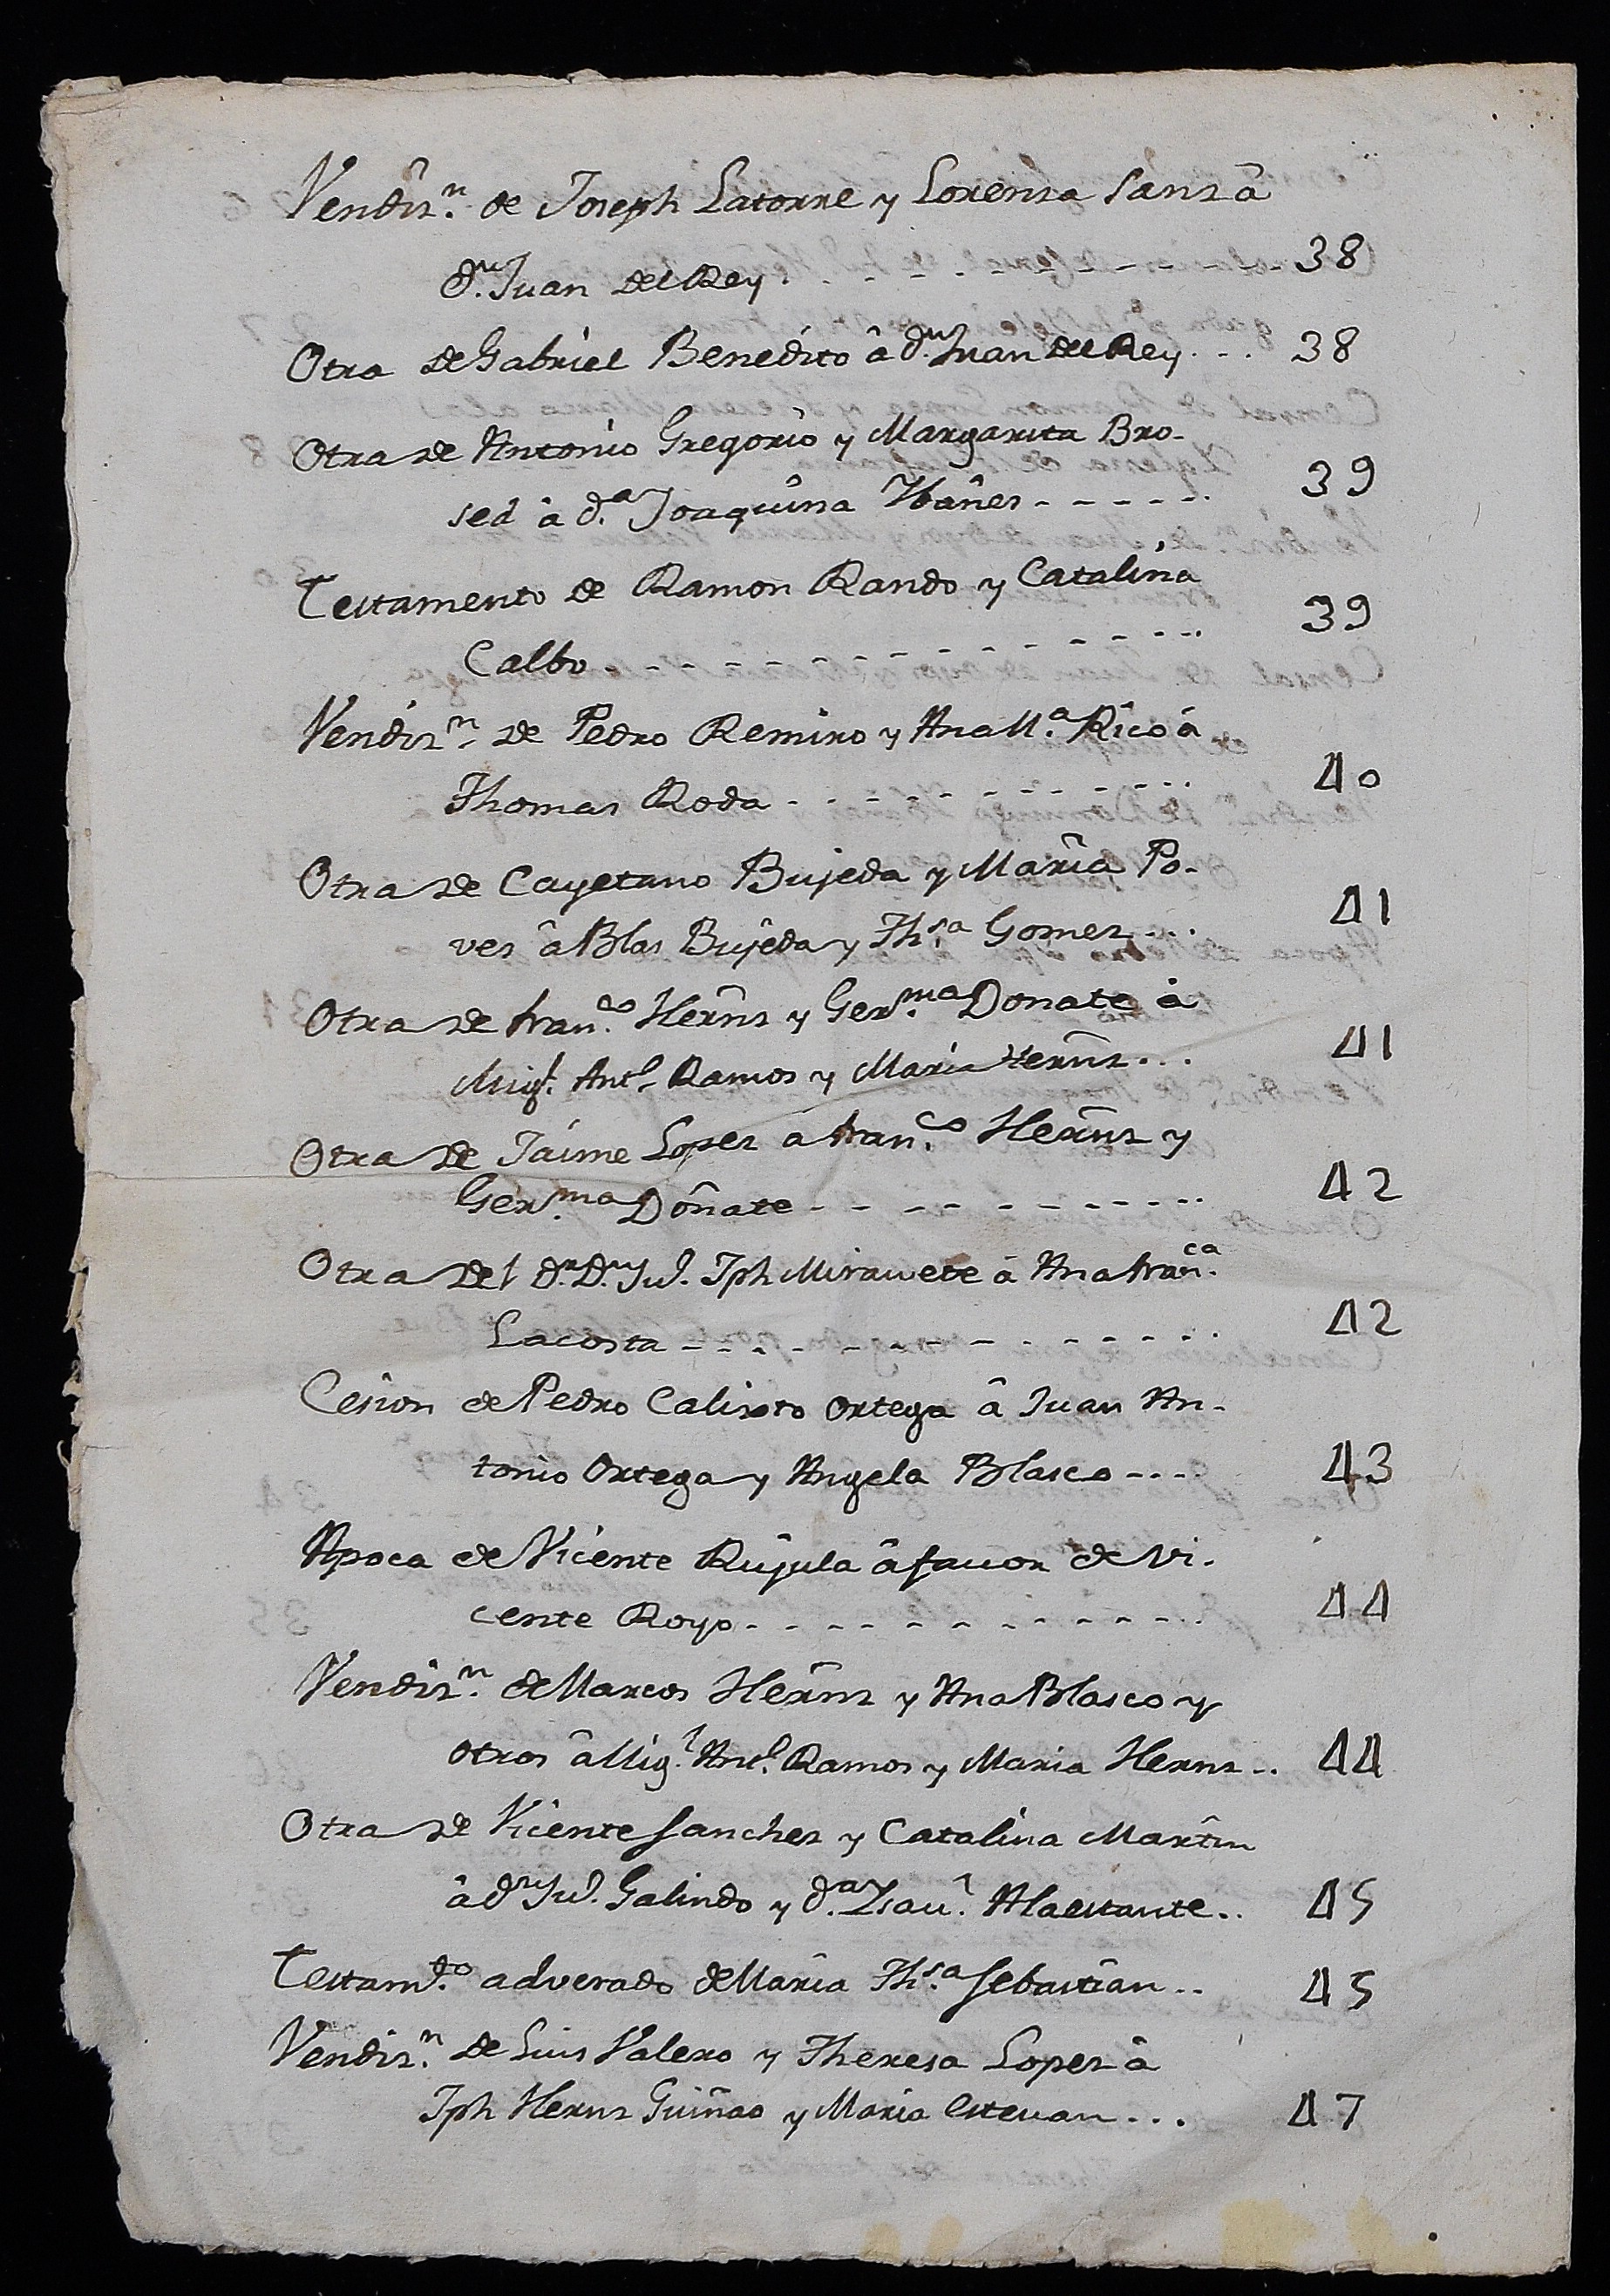 Vendiz.n de Joseph Latorre y Lorenza Sanz â
d.n Juan del Rey - - - - - - - - 38
Otra de Gabriel Benedito â d.n Juan del Rey - - - 38
Otra de Antonio Gregorio y Margarita Bro-
sed à d.a Joaquina Ybañez - - - - - - 39
Testamento de Ramon Rando y Catalina
Calbo - - - - - - - - - - - - 39
Vendiz.n de Pedro Remiro y Ana M.a Rico à
Thomas Roda - - - - - - - - - - 40
Otra de Cayetano Bujeda y Maria Po-
ves â Blas Bujeda y Th.sa Gomez - - - 41
Otra de fran.co Herñz y Ger.ma Donate à
Mig.l Ant.o Ramos y Maria Herñz - - - 41
Otra de Jaime Lopez a fran.co Herñz y
Ger.ma Doñate - - - - - - - - - - 42
Otra del d.r D.n Ju.o Jph Miravete â Ana fran.ca
Lacosta - - - - - - - - - - - - 42
Cesion de Pedro Calixto Ortega â Juan An-
tonio Ortega y Angela Blasco - - - - 43
Apoca de Vicente Rújula â favor de Vi-
cente Royo - - - - - - - - - - - - 44
Vendiz.n de Marcos Herñz y Ana Blasco y
otros â Mig.l Ant.o Ramos y Maria Hernz - - 44
Otra de Vicente Sanchez y Catalina Martin
â d.n Ju.o Galindo y d.a Isav.l Alaestante - - 45
Testam.to adverado de Maria Th.sa Sebastian - - 45
Vendiz.n de Luis Valero y Theresa Lopez â
Jph Hernz Guiñao y Maria Estevan - - - 47